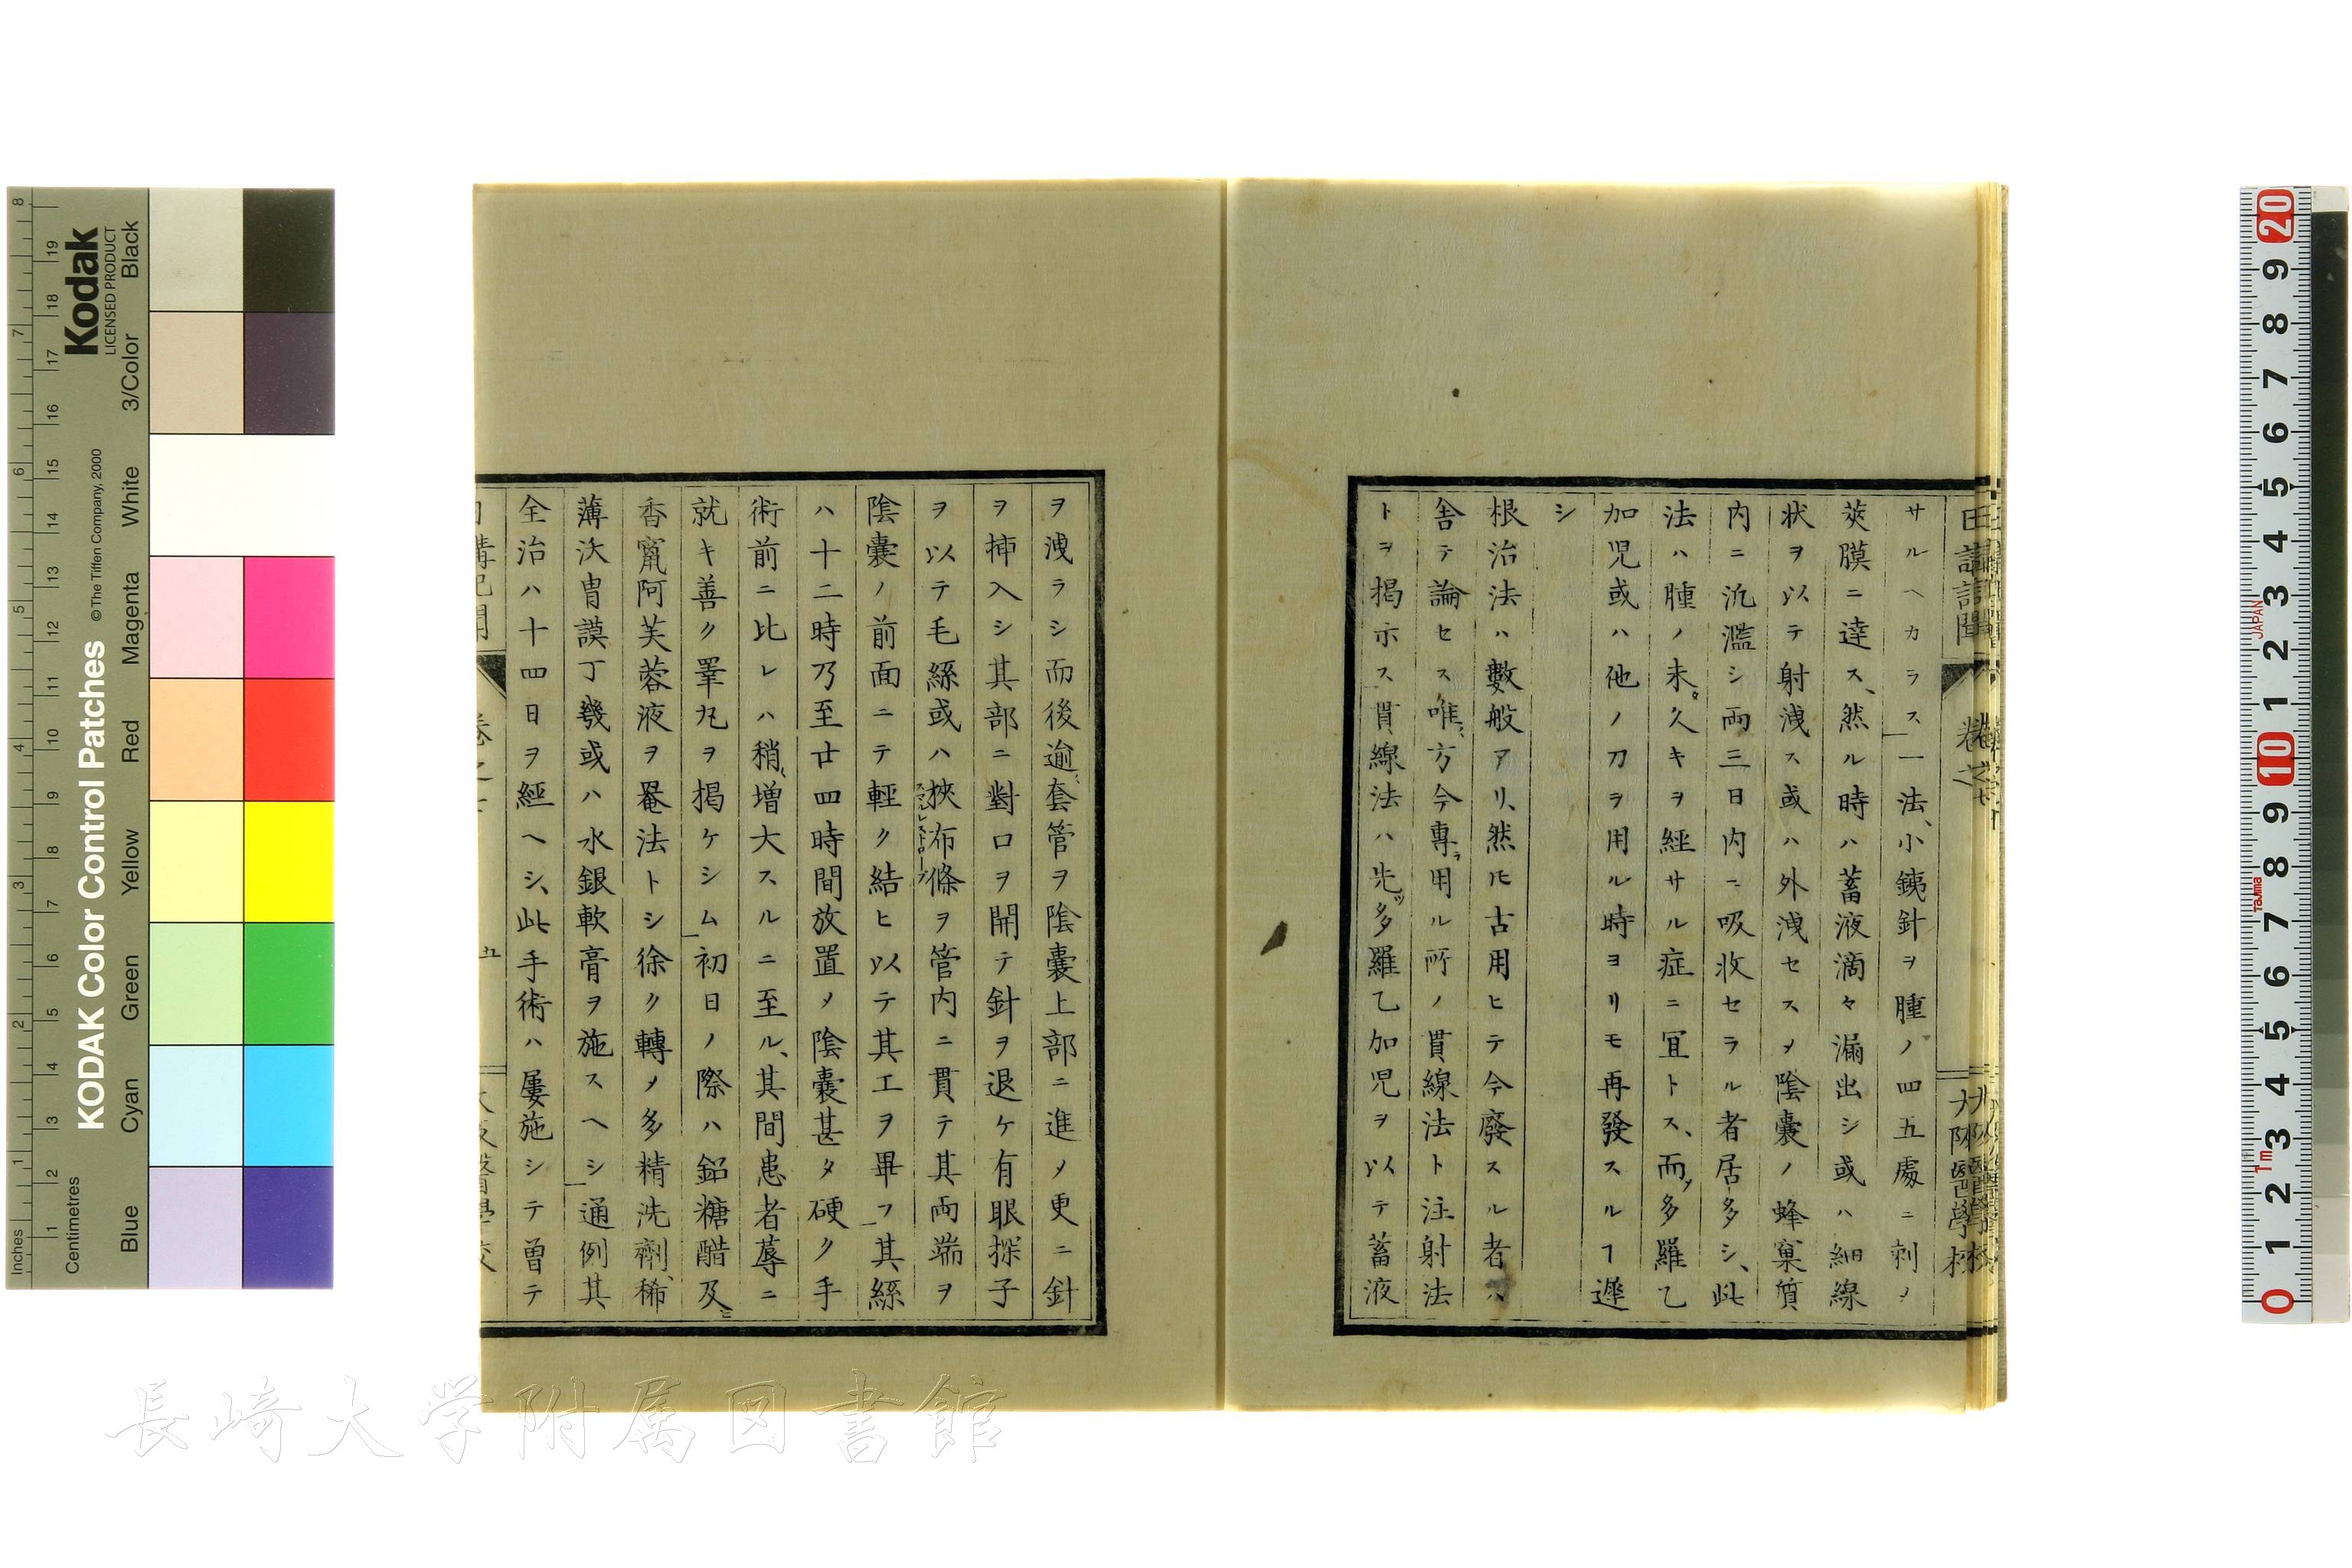 サルヘカラス一法、小銕針ヲ腫ノ四五處ニ刺ノ
莢膜ニ達ス、然ル時ハ蓄液滴々漏出シ或ハ細線
状ヲ以テ射洩ス或ハ外洩セスメ陰囊ノ蜂窠質
内ニ氿濫シ両三日内ニ吸收セラル者居多シ、此
法ハ腫ノ未タ久キヲ經サル症ニ冝トス、而メ多羅乙
加児或ハ他ノ刀ヲ用ル時ヨリモ再發スルヿ遲
シ
根治法ハ數般アリ、然𪜈古用ヒテ今廢スル者ハ
舎テ論セス唯方今專ラ用ル所ノ貫線法ト注射法
トヲ掲示ス貫線法ハ先ツ多羅乙加児ヲ以テ蓄液
ヲ洩ラシ而後逾套管ヲ陰囊上部ニ進メ更ニ針
ヲ挿入シ其部ニ對口ヲ開テ針ヲ退ケ有眼探子
ヲ以テ毛絲或ハ挾布條ヲ管内ニ貫テ其両端ヲ
陰囊ノ前面ニテ輕ク結ヒ以テ其工ヲ畢フ其絲
ハ十二時乃至廿四時間放置メ陰囊甚タ硬ク手
術前ニ比レハ稍増大スルニ至ル、其間患者蓐ニ
就キ善ク睪丸ヲ掲ケシム初日ノ際ハ鉛糖醋及ヒ
香竄阿芙蓉液ヲ罨法トシ徐ク轉メ多精洗劑、稀
薄沃胄謨丁幾或ハ水銀軟膏ヲ施スヘシ通例其
全治ハ十四日ヲ經ヘシ、此手術ハ屢施シテ曽テ
卷之七
五
Kodak
LICENSED PRODUCT
KODAK Color Control Patches
©The Tiffen Company, 2000
Blue Cyan Green Yellow Red Magenta White 3/Color Black
Inches 1 2 3 4 5 6 7 8
Centimetres 1 2 3 4 5 6 7 8 9 10 11 12 13 14 15 16 17 18 19
0 1 2 3 4 5 6 7 8 9 10 1 2 3 4 5 6 7 8 9 20
1m Tajima JAPAN
長崎大学附属図書館